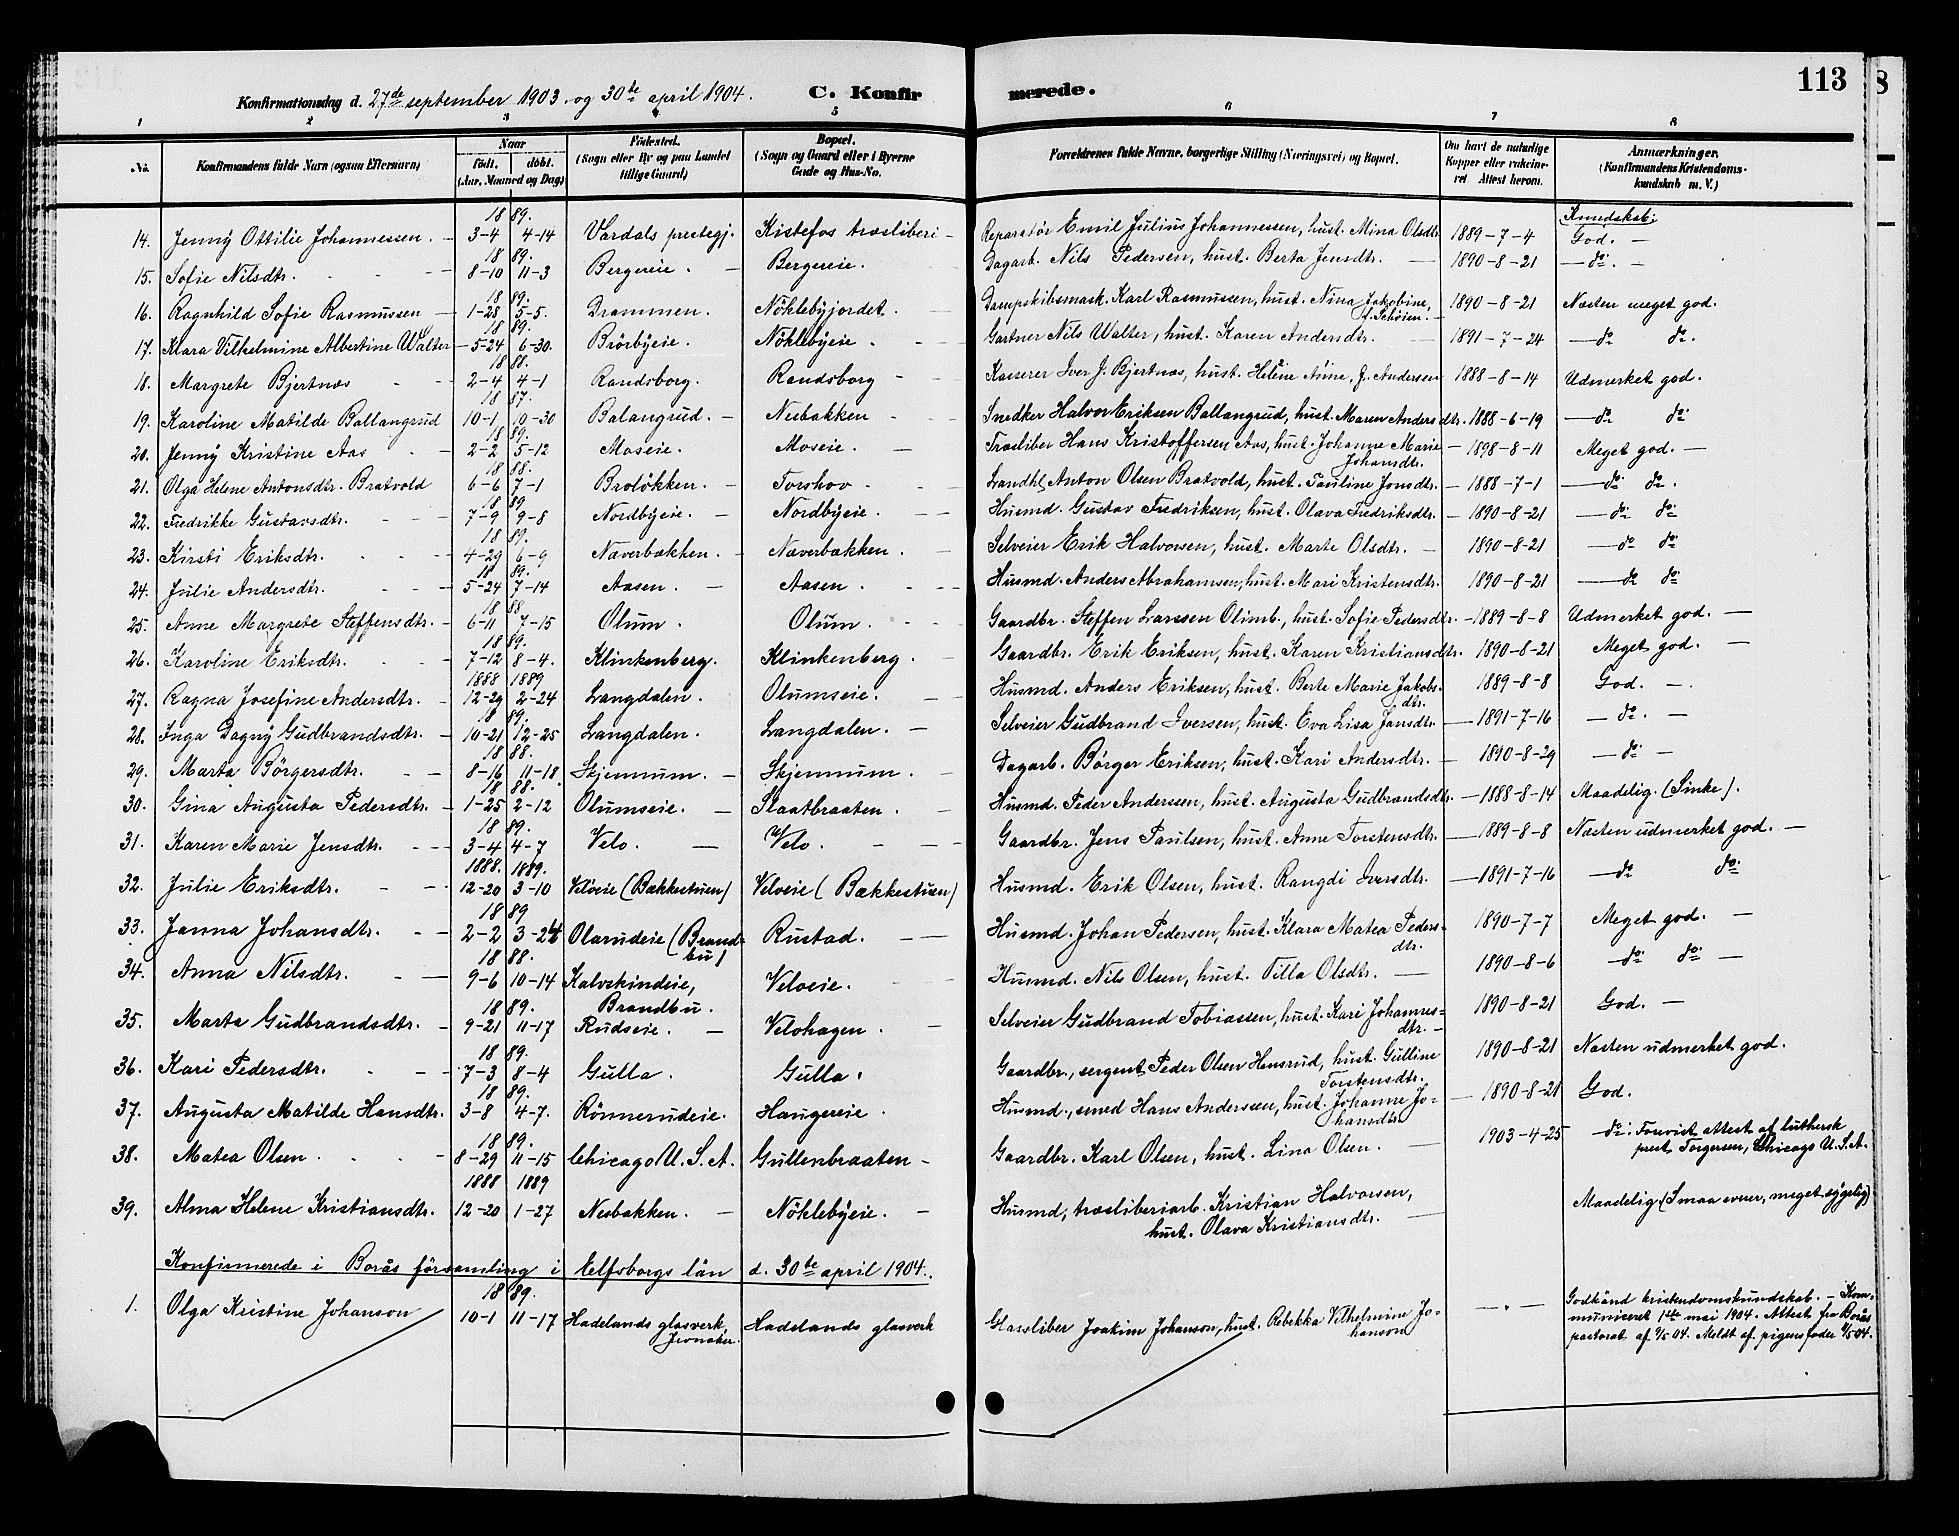 113
8
Konfirmationsdag d. 27de september 1903. og 30te april 1904. C. Konfirmerede.
1 2 3 4 5 6 7 8
No. Konfirmandens fulde Navn (ogsaa Efternavn) Naar født. døbt. (Aar, Maaned og Dag) Fødested. (Sogn eller By og paa Landet tillige Gaard.) Bopæl. (Sogn og Gaard eller i Byerne Gade og Hus-No. Forældrenes fulde Navne, borgerlige Stilling (Næringsvei) og Bopæl. Om havt de naturlige Kopper eller vakcineret Attest herom. Anmærkninger. (Konfirmandens Kristendomskundskab m. V.)
Kundskab:
14. Jenny Ottilie Johannessen. 1889. 3-4 4-14 Vardals prestegj. Kistefos træsliberi Reparatør Emil Julius Johannessen, hust. Mina Olsdtr. 1889-7-4 God.
15. Sofie Nilsdtr. 1889. 8-10 11-3 Bergereie. Bergereie. Dagarb. Nils Pedersen, hust. Berta Jensdtr. 1890-8-21 do.
16. Ragnhild Sofie Rasmussen 1889. 1-28 5-5. Drammen. Nöklebyjordet. Dampskibsmask. Karl Rasmussen, hust. Nina Jakobine, f. Schöien. 1890-8-21 Næsten meget god.
17. Klara Vilhelmine Albertine Walter 1889. 5-24 6-30. Brörbyeie. Nöklebyeie. Gartner Nils Walter, hust. Karen Andersdtr. 1891-7-24 do do.
18. Margrete Bjertnæs 1888. 2-4 4-1 Randsborg. Randsborg Kasserer Iver J. Bjertnæs, hust. Helene Anne, f. Andersen 1888-8-14 Udmerket god.
19. Karoline Matilde Ballangrud 1887. 10-1 10-30 Balangrud. Nesbakken Snedker Halvor Eriksen Ballangrud, hust. Maren Andersdtr. 1888-6-19 do do.
20. Jenny Kristine Aas 1889. 2-2 5-12 Moseie. Moseie. Træsliber Hans Kristoffersen Aas, hust. Johanne Marie Johansdtr. 1898-8-11 Meget god.
21. Olga Helene Antonsdtr. Bratvold 1888. 6-6 7-1 Brolökken. Torshov. Landhl. Anton Olsen Bratvold, hust. Pauline Jonsdtr. 1888-7-1 do. do.
22. Fredrikke Gustavsdtr. 1889 7-9 9-8 Nordbyeie. Nordbyeie. Husmd. Gustav Fredriksen, hust. Olava Fredriksdtr. 1890-8-21 do do.
23. Kirsti Eriksdtr. 1889. 4-29 6-9 Næverbakken. Næverbakken. Selveier Erik Halvorsen, hust. Marte Olsdtr. 1890-8-21 do do.
24. Julie Andersdtr. 1889. 5-24 7-14 Aasen. Aasen. Husmd. Anders Abrahamsen, hust. Mari Kristensdtr. 1890-8-21 do do.
25. Anne Margrete Steffensdtr. 1888 6-11 7-15 Olum. Olum. Gaardbr. Steffen Larssen Olimb., hust. Sofie Pedersdtr. 1889-8-8 Udmerket god.
26. Karoline Eriksdtr. 1889. 7-12 8-4. Klinkenberg. Klinkenberg. Gaardbr. Erik Eriksen, hust. Karen Kristiansdtr. 1890-8-21 Meget god.
27. Ragna Josefine Andersdtr. 1888 1889 12-29 2-24 Langdalen. Olumseie. Husmd. Anders Eriksen, hust. Berte Marie Jakobsdtr. 1889-8-8 God.
28. Inga Dagny Gudbrandsdtr. 1889. 10-21 12-25 Langdalen. Langdalen. Selveier Gudbrand Iversen, hust. Eva Lisa Jansdtr. 1891-7-16 do.
29. Marta Börgersdtr. 1888. 8-16 11-18 Skjennum. Skjennum. Dagarb. Börger Eriksen, hust. Kari Andersdtr. 1890-8-29 do.
30. Gina Augusta Pedersdtr. 1888. 1-25 2-12 Olumseie. Slaatbraaten. Husmd. Peder Anderssen, hust. Augusta Gudbrandsdtr. 1888-8-14 Maadelig. (Sinke).
31. Karen Marie Jensdtr. 1889. 3-4 4-7 Velo. Velo. Gaardbr. Jens Paulsen, hust. Anne Torstensdtr. 1889-8-8 Næsten udmerket god.
32. Julie Eriksdtr. 1888. 1889. 12-20 3-10 Veloeie (Bækkestuen) Veloeie (Bækkestuen) Husmd. Erik Olsen, hust. Rangdi Iversdtr. 1891-7-16 do do.
33. Janna Johansdtr. 1889 2-2 3-24 Olarudeie (Brandbu) Rustad. Husmd. Johan Pedersen, hust. Klara Matea Pedersdtr. 1890-7-7 Meget god.
34. Anna Nilsdtr. 1888. 9-6 10-14 Kalvskindeie, Brandbu. Veloeie. Husmd. Nils Olsen, hust. Tilla Olsdtr. 1890-8-6 do. do.
35. Marta Gudbrandsdtr. 1889. 9-21 11-17 Rudseie. Velohagen. Selveier Gudbrand Tobiassen, hust. Kari Johannesdtr. 1890-8-21 God.
36. Kari Pedersdtr. 1889. 7-3 8-4 Gulla. Gulla. Gaardbr., sergent Peder Olsen Hensrud, hust. Gulline Torstensdtr. 1890-8-21 Næsten udmerket god.
37. Augusta Matilde Hansdtr. 1889. 3-8 4-7. Rönnerudeie. Haugereie. Husmd., smed Hans Anderssen, hust. Johanne Johansdtr. 1890-8-21 God.
38. Matea Olsen 1889. 8-29 11-15 Chicago U. S. A. Gullenbraaten Gaardbr. Karl Olsen, hust. Lina Olsen. 1903-4-25 do. Forevist attest af luthersk prest Torgersen, Chicago U. S. A.
39. Alma Helene Kristiansdtr. 1888 1889 12-20 1-27 Nesbakken. Nöklebyeie. Husmd, træsliberiarb. Kristian Halvorsen, hust. Olava Kristiansdtr. Maadelig (Smaa evner, meget sygelig)
Konfirmerede i Borås församling i Elfsborgs län d. 30te april 1904.
1. Olga Kristine Johanson 1889. 10-1 11-17 Hadelands glasverk, Jevnaker. Hadelands glasverk Glassliber Joakim Johanson, hust. Rebekka Vilhelmine Johanson Godkänd kristendomskundskab. - Kommuniceret 1ste mai 1904. Attest fra Borås pastorat af 2/5 04. Meldt af pigens fader 4/5 04.